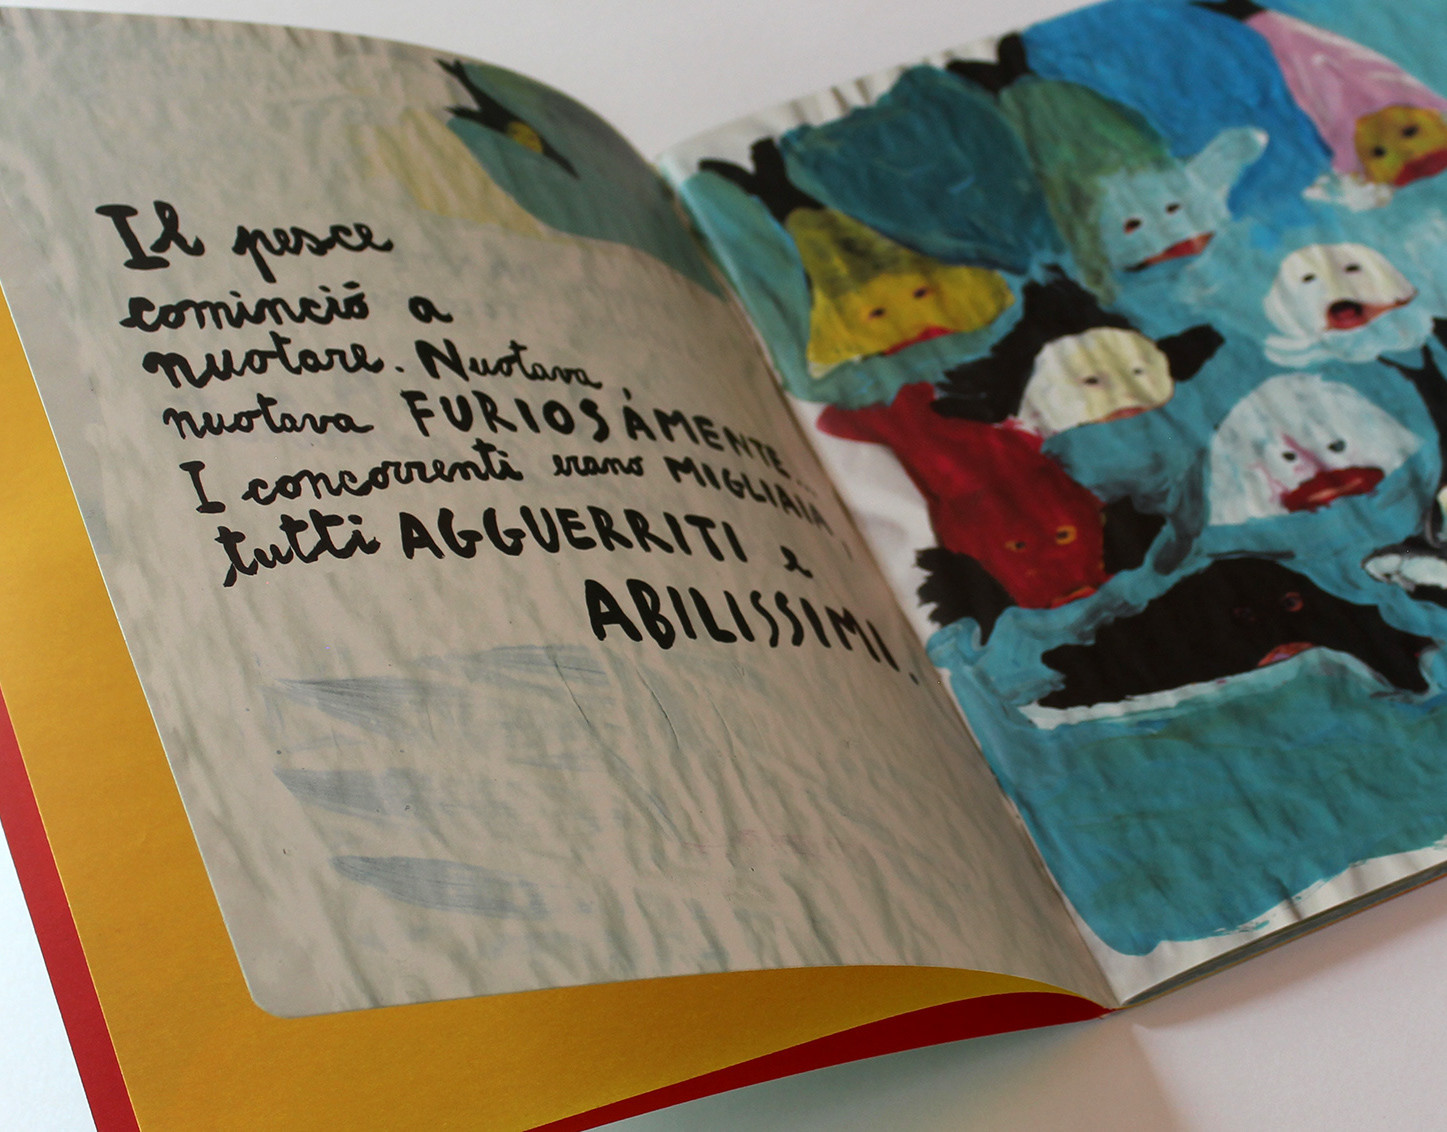 Il pesce
cominciò a
nuotare. Nuotava,
nuotava FURIOSÁMENTE...
I concorrenti erano MIGLIAIA,
tutti AGGUERRITI e
ABILISSIMI.